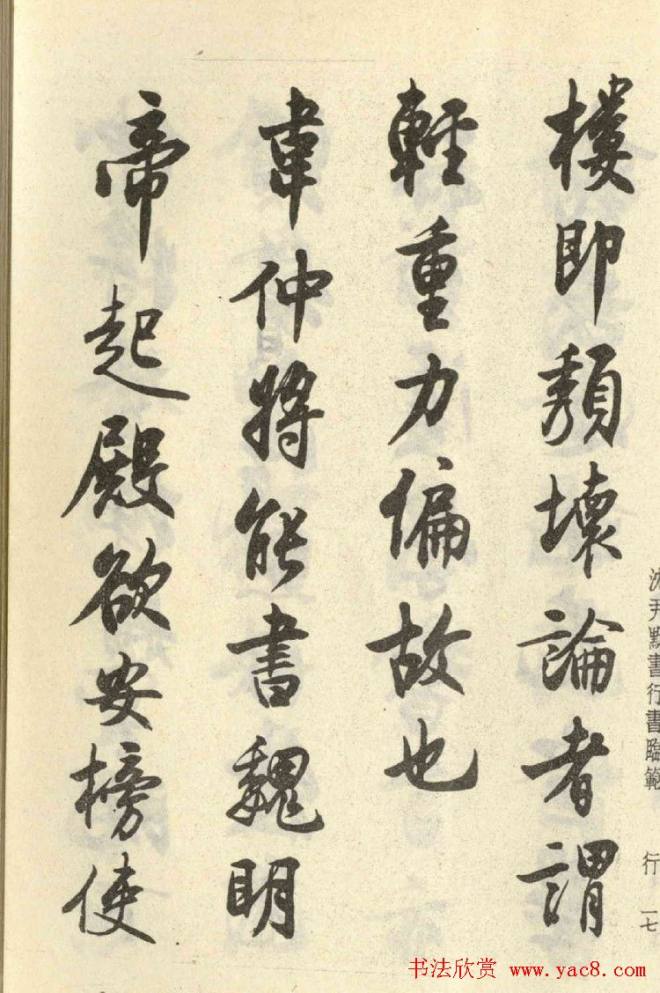 樓即頽壞論者謂
輕重力偏故也
韋仲將能書魏明
帝起殿欲安榜使
沈尹默書行書臨範
行 一七
书法欣赏 www.yac8.com